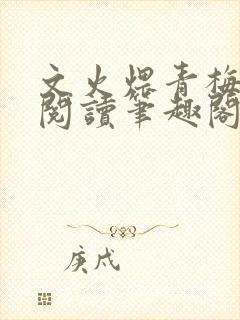 文火煨青梅
閱讀筆趣閣
庚戍